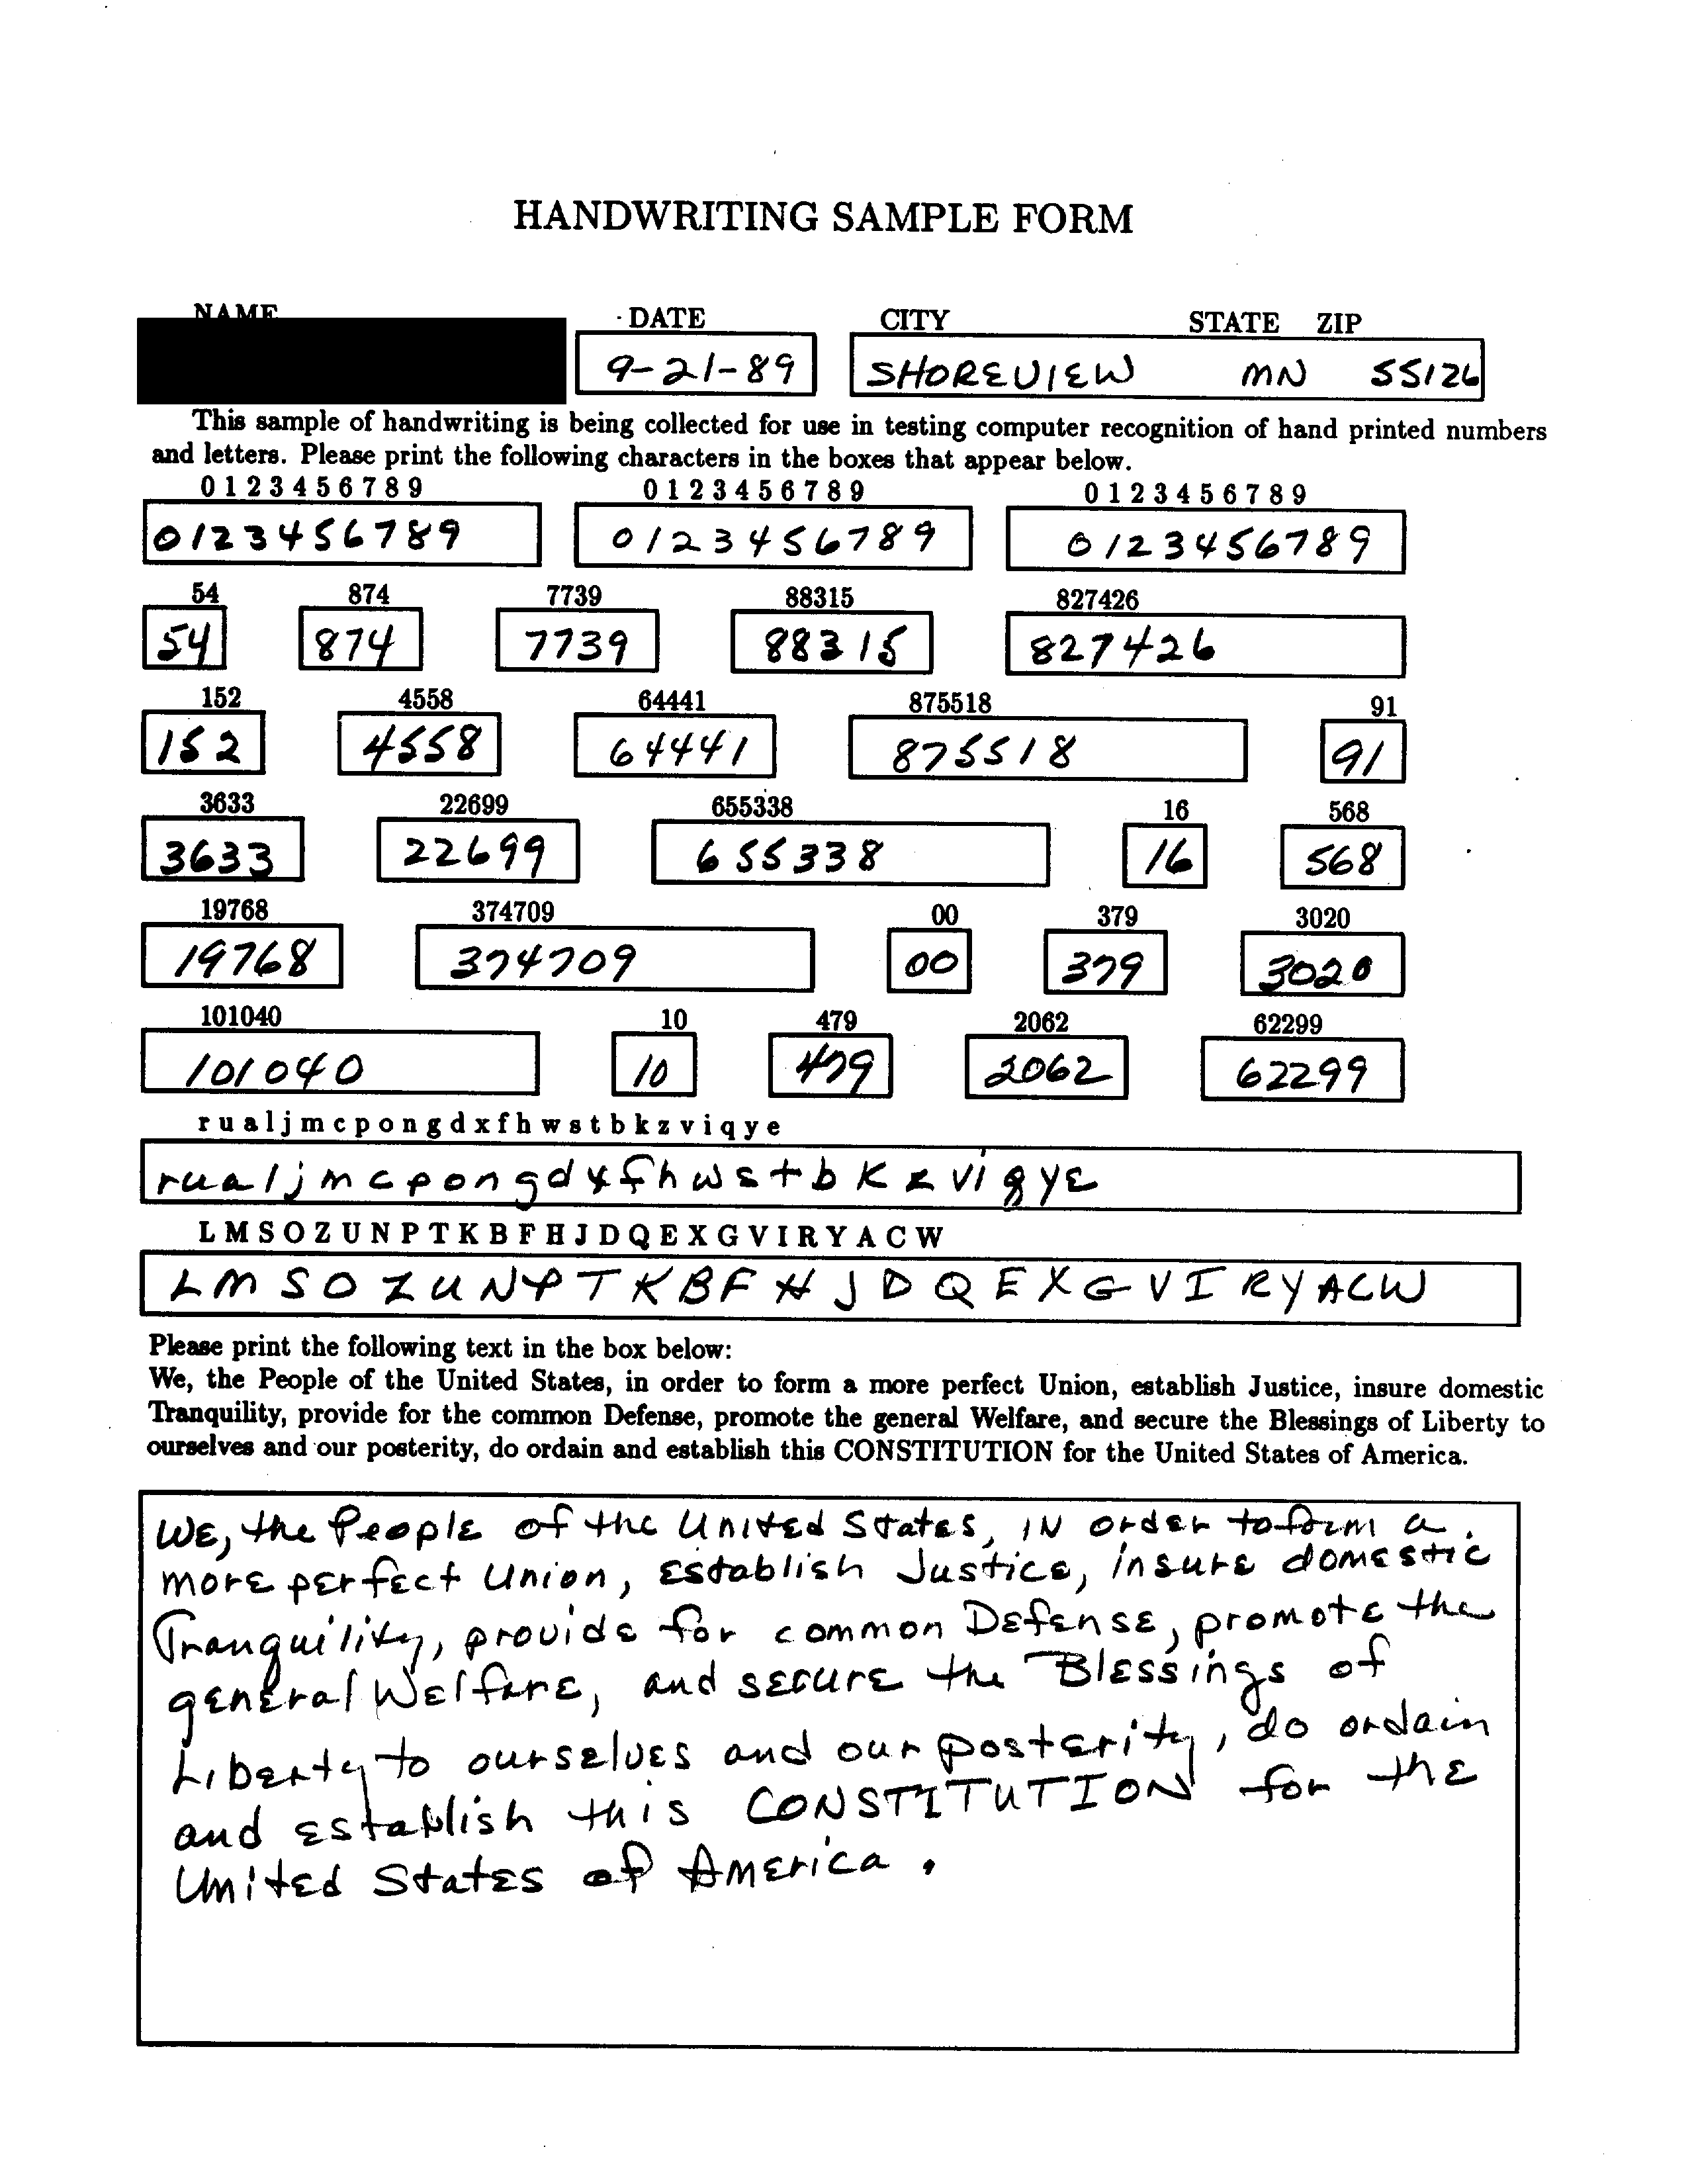 HANDWRITING SAMPLE FORM
NAME DATE CITY STATE ZIP
9-21-89 SHOREVIEW MN 55126
This sample of handwriting is being collected for use in testing computer recognition of hand printed numbers
and letters. Please print the following characters in the boxes that appear below.
0 1 2 3 4 5 6 7 8 9 0 1 2 3 4 5 6 7 8 9 0 1 2 3 4 5 6 7 8 9
0123456789 0123456789 0123456789
54 874 7739 88315 827426
54 874 7739 88315 827426
152 4558 64441 875518 91
152 4558 64441 875518 91
3633 22699 655338 16 568
3633 22699 655338 16 568
19768 374709 00 379 3020
19768 374709 00 379 3020
101040 10 479 2062 62299
101040 10 479 2062 62299
r u a l j m c p o n g d x f h w s t b k z v i q y e
r u a l j m c p o n g d x f h w s t b k z v i q y e
L M S O Z U N P T K B F H J D Q E X G V I R Y A C W
L M S O Z U N P T K B F H J D Q E X G V I R Y A C W
Please print the following text in the box below:
We, the People of the United States, in order to form a more perfect Union, establish Justice, insure domestic
Tranquility, provide for the common Defense, promote the general Welfare, and secure the Blessings of Liberty to
ourselves and our posterity, do ordain and establish this CONSTITUTION for the United States of America.
We, the People of the United States, in order to form a
more perfect Union, establish Justice, insure domestic
Tranquility, provide for common Defense, promote the
general Welfare, and secure the Blessings of
Liberty to ourselves and our posterity, do ordain
and establish this CONSTITUTION for the
United States of America.